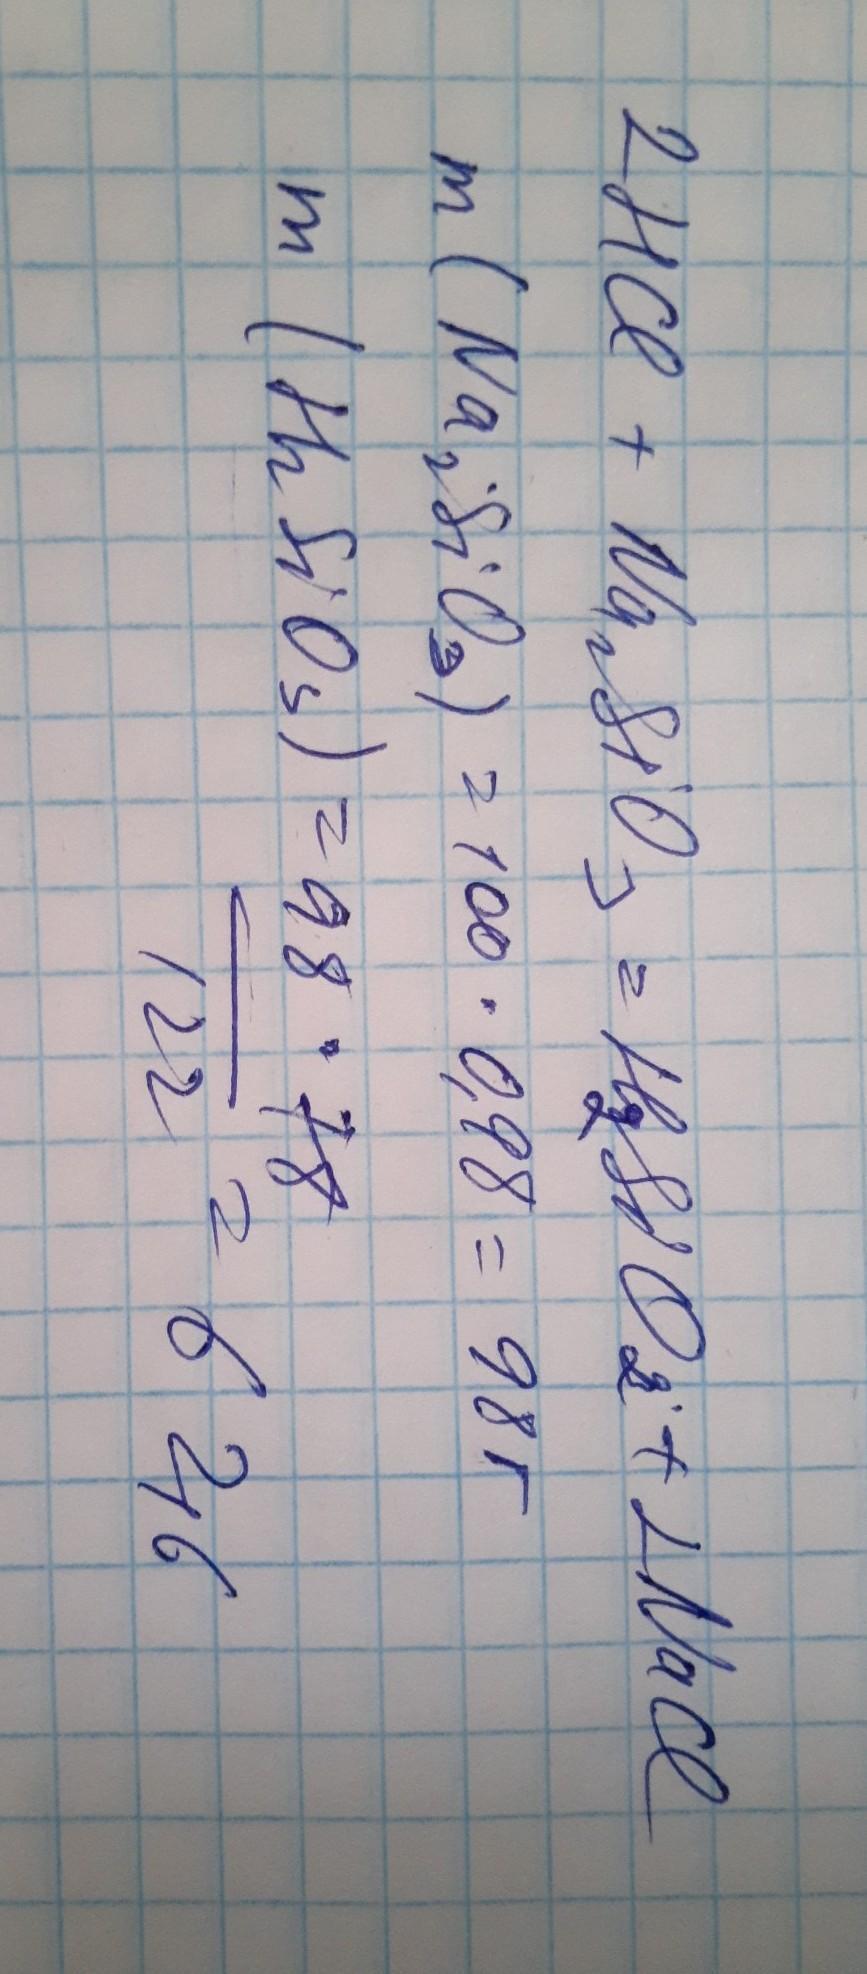 2HCl + Na₂SiO₃ = H₂SiO₂ + 2NaCl
m (Na₂SiO₃) = 100 · 0,98 = 98 г
m (H₂SiO₃) = 98 · 78
122 = 6 246